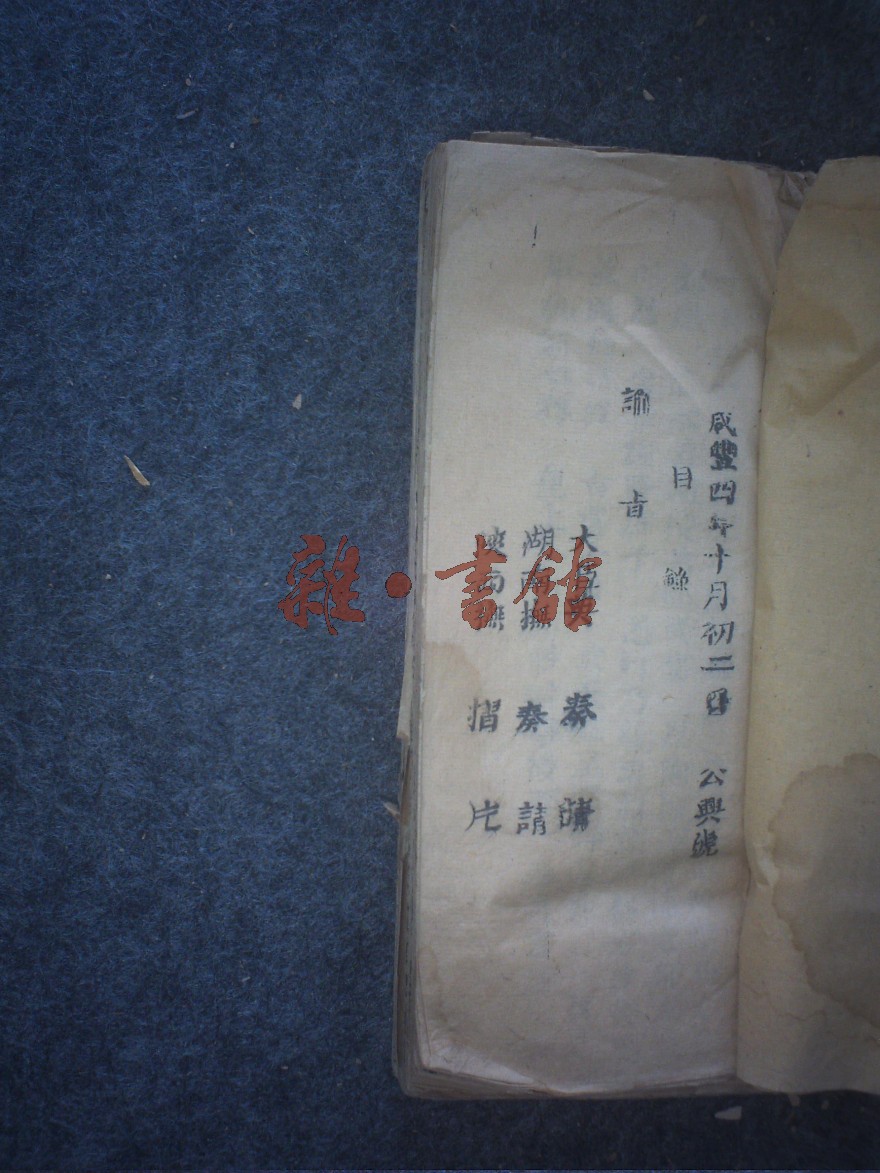 咸豐四年十月初二日 公興號
目錄
諭旨
大 奏請
湖南撫 奏請
南撫 摺片
雜·書館